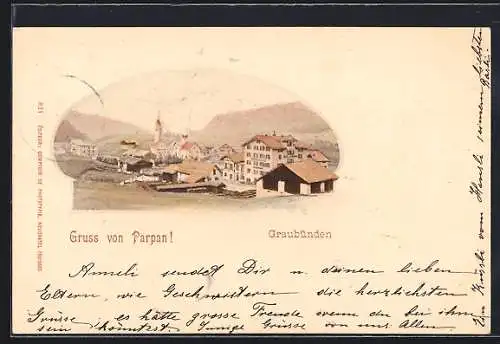 Gruss von Parpan!
Graubünden
Anneli sendet Dir u. deinen lieben
Eltern, wie Geschwistern die herzlichsten
Grüsse, es hätte grosse Freude wenn du bei ihm
sein könntest. Innige Grüsse von uns Allen.
Un Küssli vom Hansli seinem liebsten